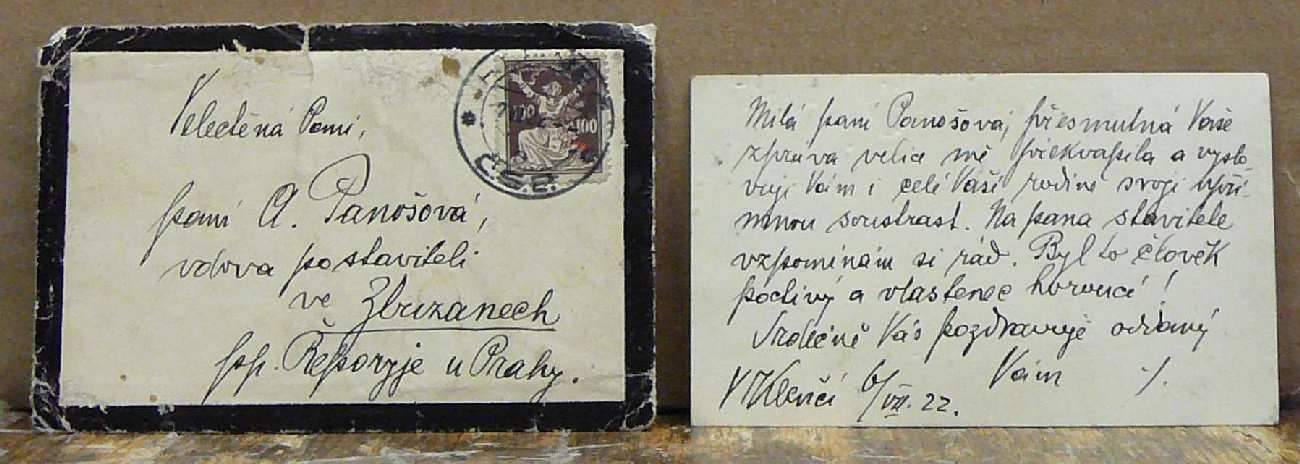 Velectěná Paní,
paní A. Panošová,
vdova po staviteli
ve Zbuzanech
pp. Řeporyje u Prahy.
100 100
Č.S.P.
Milá paní Panošová, přesmutná Vaše
zpráva velice mě překvapila a vyslo-
vuji Vám i celé Vaší rodině svoji upří-
mnou soustrast. Na pana stavitele
vzpomínám si rád. Byl to člověk
poctivý a vlastenec horoucí!
Srdečně Vás pozdravuje oddaný
Vám ./.
V 6/VII. 22.